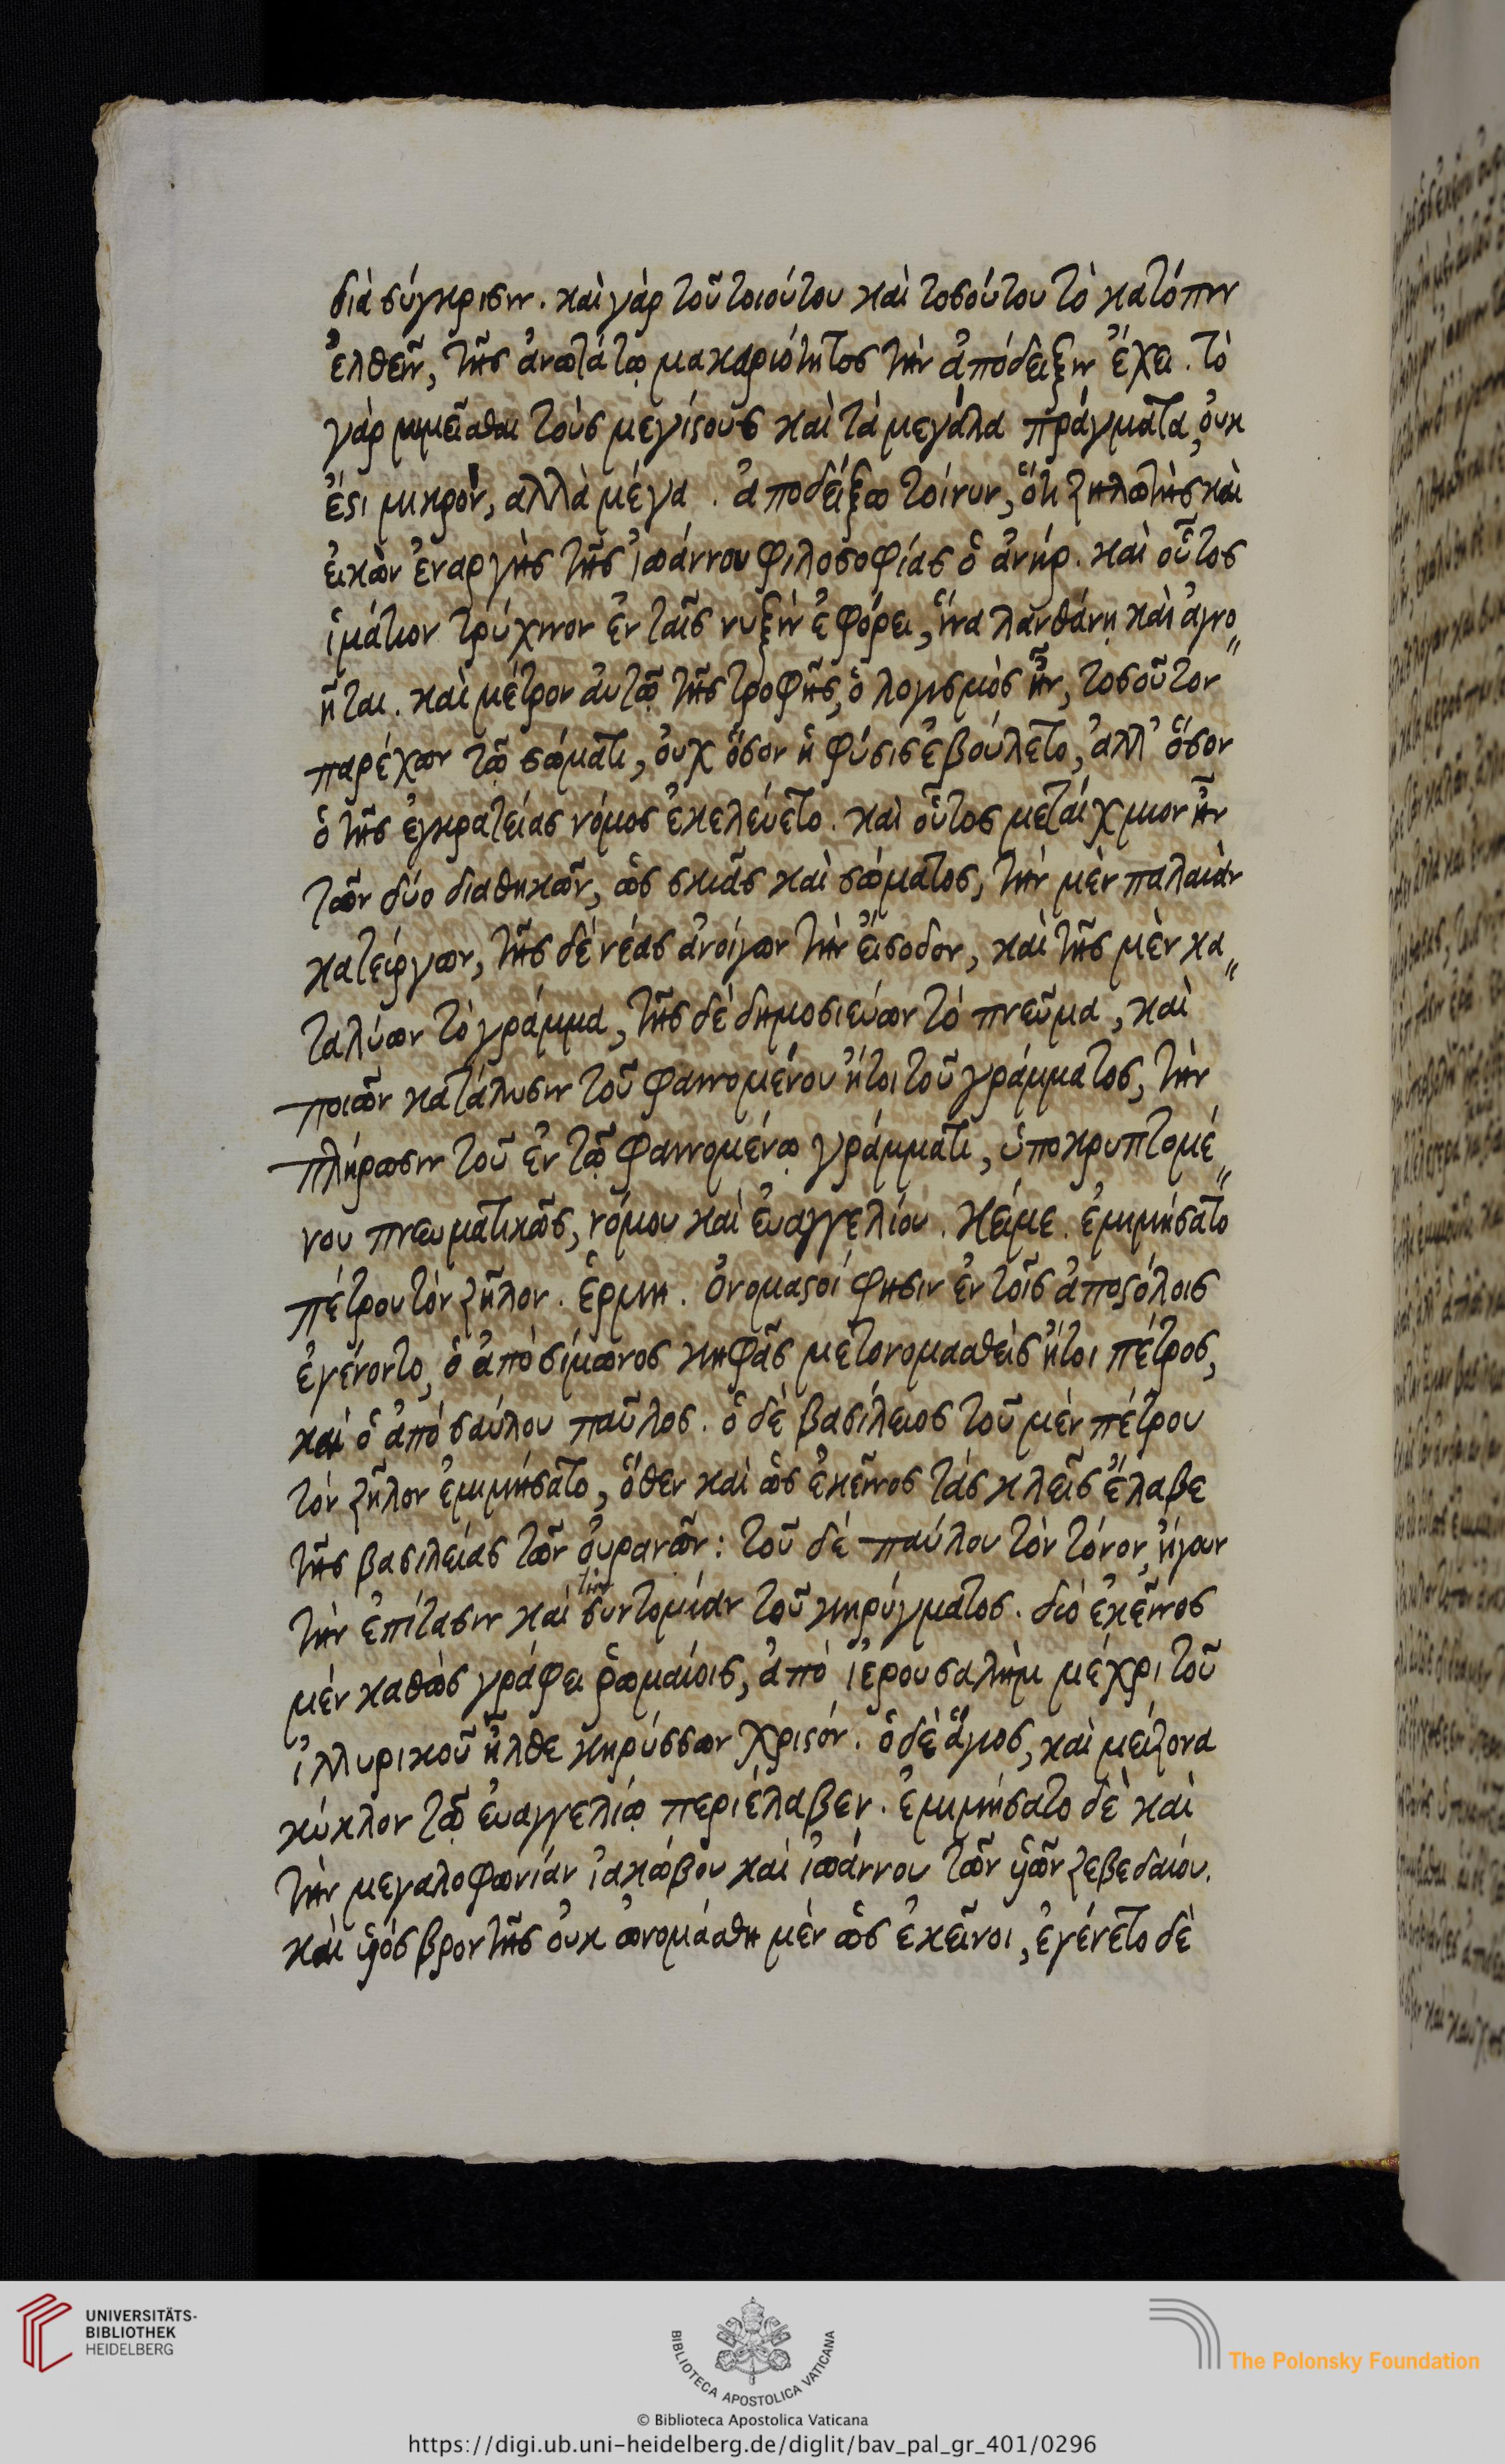 διὰ σύγκρισιν. καὶ γὰρ τοῦ τοιούτου καὶ τοσούτου τὸ κατόπιν
ἐλθεῖν, τῆς ἀνωτάτω μακαριότητος τὴν ἀπόδειξιν ἔχει. τὸ
γὰρ μιμεῖσθαι τοὺς μεγίστους καὶ τὰ μεγάλα πράγματα, οὐκ
ἔστι μικρὸν, αλλὰ μέγα. ἀποδείξω τοίνυν, ὅτι ζηλωτὴς καὶ
εἰκὼν ἐναργὴς τῆς ἰωάννου φιλοσοφίας ὁ ἀνήρ. καὶ οὗτος
ἱμάτιον τρύχινον ἐν ταῖς νυξὶν ἐφόρει, ἵνα λανθάνῃ καὶ ἀγνο„
ῆται. καὶ μέτρον αὐτῷ τῆς τροφῆς, ὁ λογισμὸς ἦν, τοσοῦτον
παρέχων τῷ σώματι, οὐχ ὅσον ἡ φύσις ἐβούλετο, ἀλλ' ὅσον
ὁ τῆς ἐγκρατείας νόμος ἐκελεύετο. καὶ οὗτος μεταίχμιον ἦν
τῶν δύο διαθηκῶν, ὡς σκιᾶς καὶ σώματος, τὴν μὲν παλαιὰν
κατείργων, τῆς δὲ νέας ἀνοίγων τὴν εἴσοδον, καὶ τῆς μὲν κα„
ταλύων τὸ γράμμα, τῆς δὲ δημοσιεύων τὸ πνεῦμα, καὶ
ποιῶν κατάλυσιν τοῦ φαινομένου ἤτοι τοῦ γράμματος, τὴν
πλήρωσιν τοῦ ἐν τῷ φαινομένῳ γράμματι, ὑποκρυπτομέ„
νου πνευματικῶς, νόμου καὶ εὐαγγελίου. κείμε. ἐμιμήσατο
πέτρου τὸν ζῆλον. ἑρμη. ὀνομαστοί φησιν ἐν τοῖς ἀποστόλοις
ἐγένοντο, ὁ ἀπὸ σίμωνος κηφᾶς μετονομασθεὶς ἤτοι πέτρος,
καὶ ὁ ἀπὸ σαύλου παῦλος. ὁ δὲ βασίλειος τοῦ μὲν πέτρου
τὸν ζῆλον ἐμιμήσατο, ὅθεν καὶ ὡς ἐκεῖνος τὰς κλεῖς ἔλαβε
τῆς βασιλείας τῶν οὐρανῶν: τοῦ δὲ παύλου τὸν τόνον, ἤγουν
τὴν ἐπίτασιν καὶ τὴν συντομίαν τοῦ κηρύγματος. διὸ ἐκεῖνος
μὲν καθὼς γράφει ῥωμαίοις, ἀπὸ ἱερουσαλὴμ μέχρι τοῦ
ἰλλυρικοῦ ἦλθε κηρύσσων χριστόν. ὁ δὲ ἅγιος, καὶ μείζονα
κύκλον τῷ εὐαγγελίῳ περιέλαβεν. ἐμιμήσατο δὲ καὶ
τὴν μεγαλοφωνίαν ἰακώβου καὶ ἰωάννου τῶν υἱῶν ζεβεδαίου.
καὶ υἱὸς βροντῆς οὐκ ὠνομάσθη μὲν ὡς ἐκεῖνοι, ἐγένετο δὲ
UNIVERSITÄTS-
BIBLIOTHEK
HEIDELBERG
BIBLIOTECA APOSTOLICA VATICANA
The Polonsky Foundation
© Biblioteca Apostolica Vaticana
https://digi.ub.uni-heidelberg.de/diglit/bav_pal_gr_401/0296